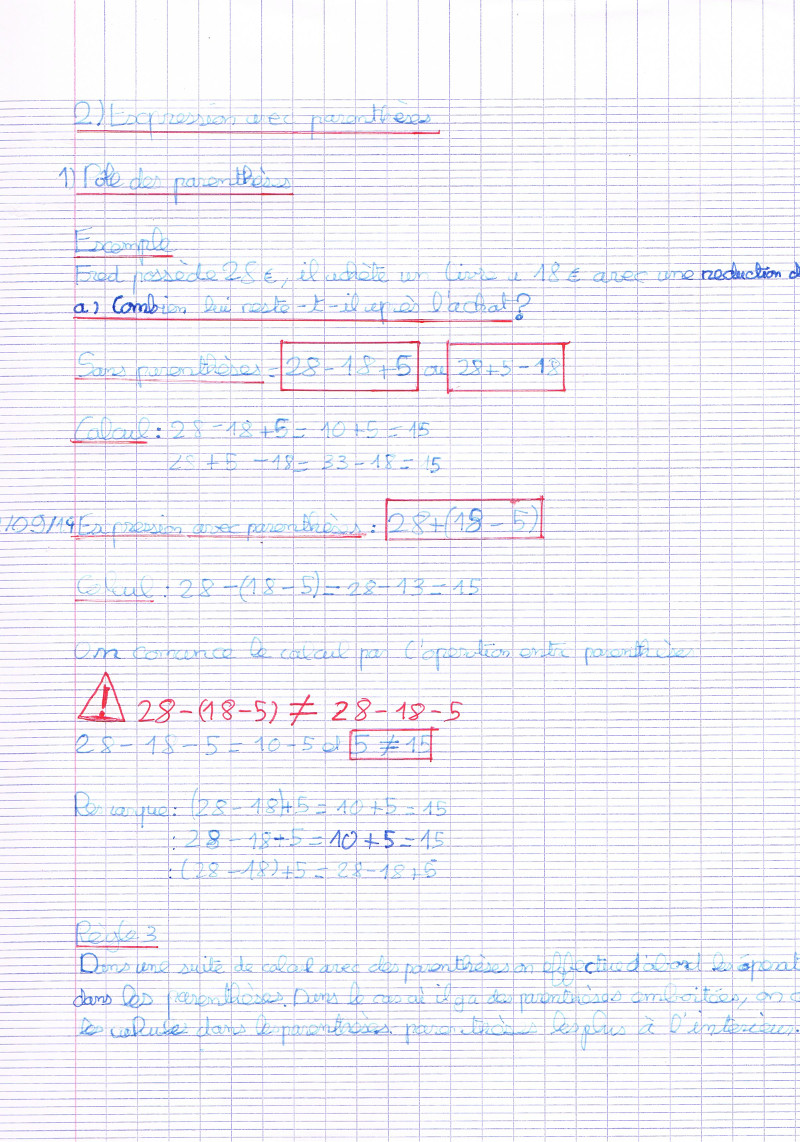 2) Expression avec parenthèses
1) Rôle des parenthèses
Exemple
Fred possède 28 €, il achète un livre à 18 € avec une reduction d
a) Combien lui reste-t-il après l'achat ?
Sans parenthèses = 28 - 18 + 5 ou 28 + 5 - 18
Calcul : 28 - 18 + 5 = 10 + 5 = 15
28 + 5 - 18 = 33 - 18 = 15
/09/19 Expression avec parenthèses : 28 + (18 - 5)
Calcul : 28 - (18 - 5) = 28 - 13 = 15
On comence le calcul par l'operation entre parenthèse
! 28 - (18 - 5) ≠ 28 - 18 - 5
28 - 18 - 5 = 10 - 5 et 5 ≠ 15
Remarque : (28 - 18) + 5 = 10 + 5 = 15
: 28 - 18 + 5 = 10 + 5 = 15
: (28 - 18) + 5 = 28 - 18 + 5
Règle 3
Dans une suite de calcul avec des parenthèses on effectue d'abord les óperat
dans les parenthèses. Dans le cas où il y a des parenthèses emboitées, on
les calculs dans les parenthèses parenthèses les plus à l'interieur.